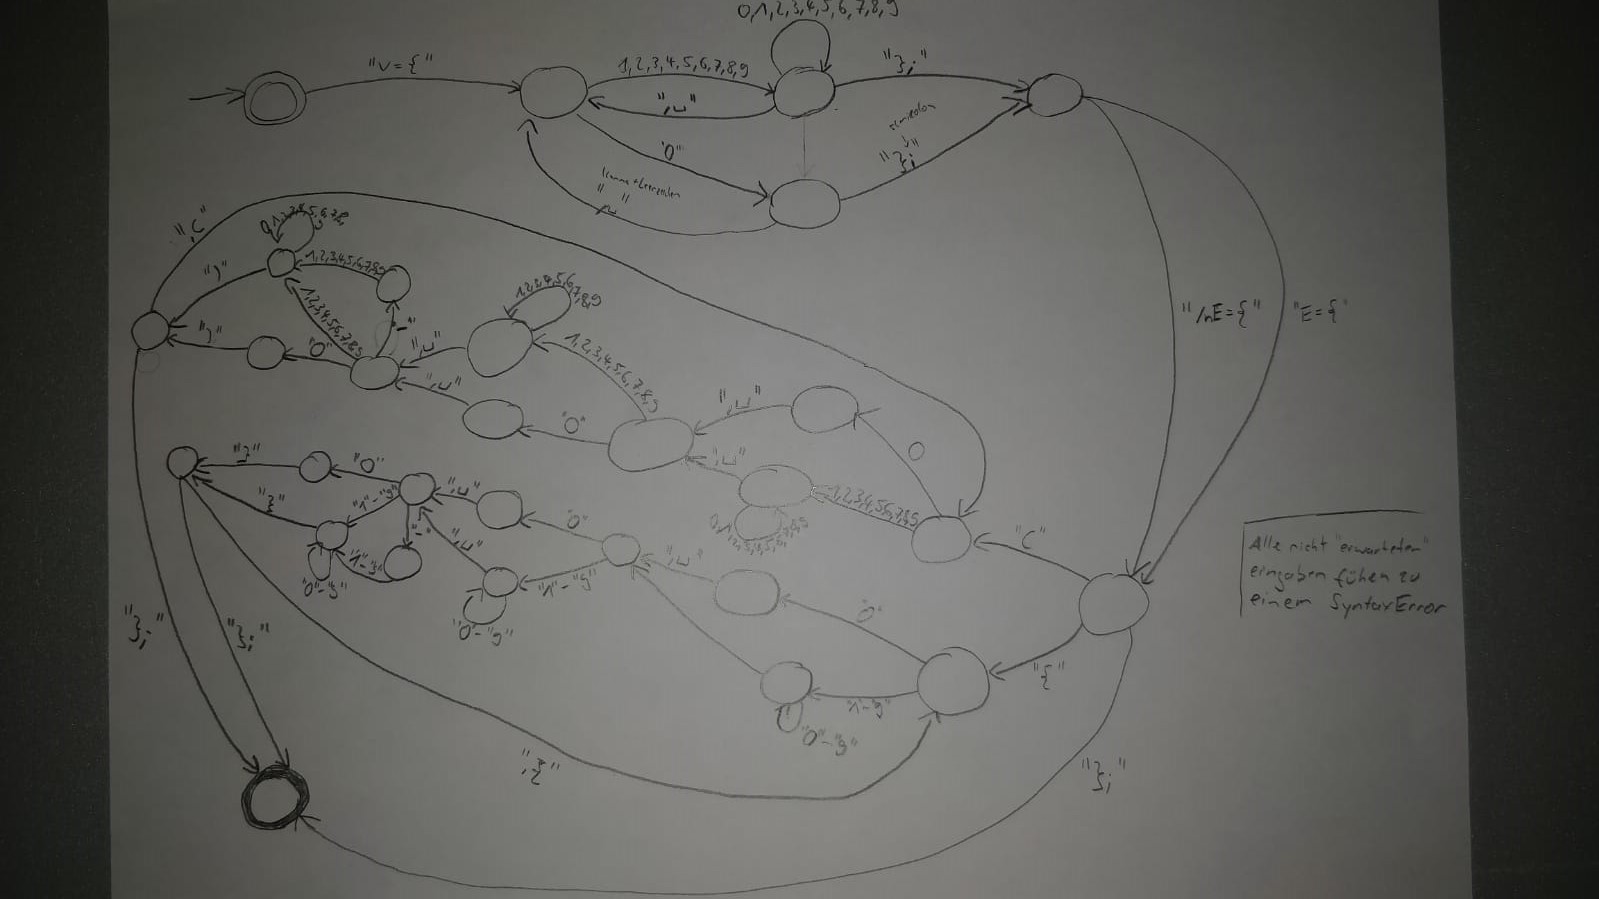 0,1,2,3,4,5,6,7,8,9
"V={"
1,2,3,4,5,6,7,8,9
"};"
",␣"
"0"
"};"
Komma + Leerzeichen
",␣"
",("
0,1,2,3,4,5,6,7,8,9
")"
1,2,3,4,5,6,7,8,9
1,2,3,4,5,6,7,8,9
"-"
")"
"0"
",␣"
1,2,3,4,5,6,7,8,9
1,2,3,4,5,6,7,8,9
",␣"
"0"
",␣"
0
",␣"
1,2,3,4,5,6,7,8,9
0,1,2,3,4,5,6,7,8,9
"("
"E={"
"}"
"0"
"1"-"9"
",␣"
"}"
"-"
"1"-"9"
"0"-"9"
"0"
",␣"
"1"-"9"
"0"-"9"
",␣"
"0"
"{"
"1"-"9"
"0"-"9"
"};"
"};"
",{"
"};"
Alle nicht "erwarteten"
eingaben führen zu
einem SyntaxError